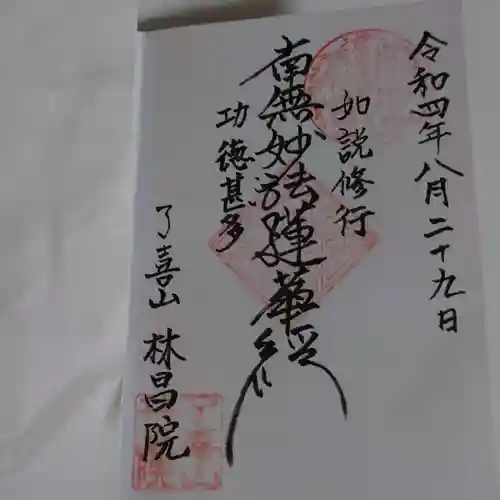 令和四年八月二十九日
如説修行
南無妙法蓮華経
功徳甚多
了喜山 林昌院